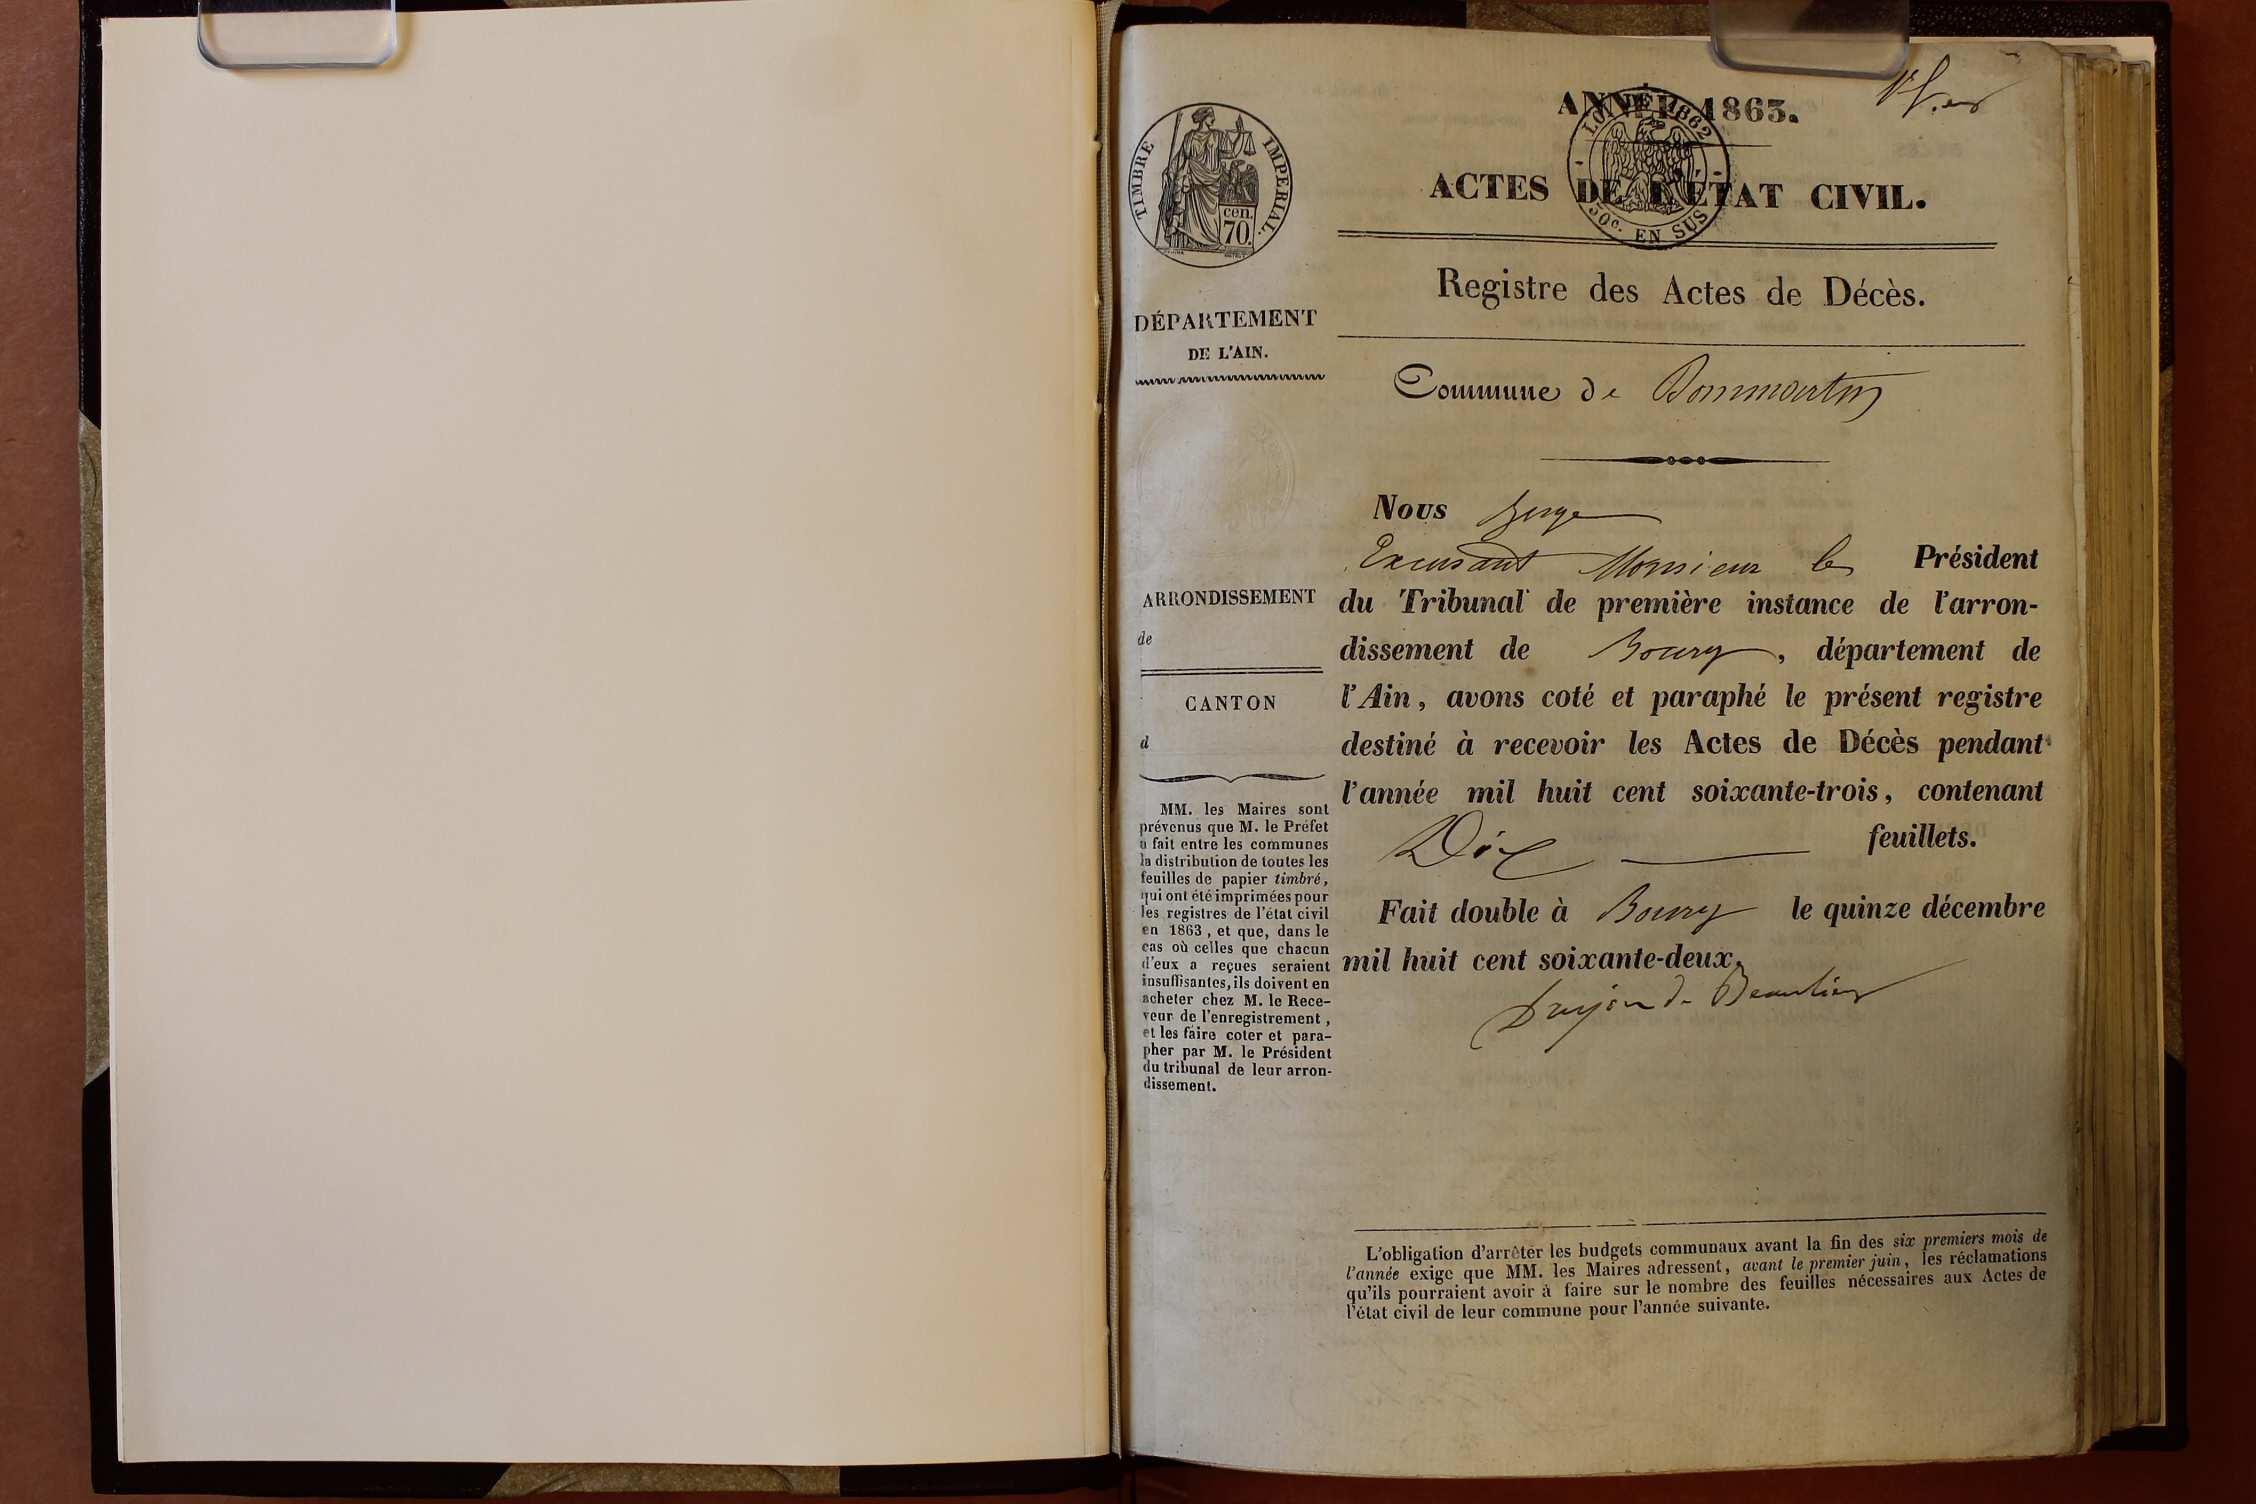 ANNÉE 1863.
1er f.
LOI DE 1862
50c. EN SUS
TIMBRE IMPERIAL.
cen.
70.
ACTES DE L'ÉTAT CIVIL.
Registre des Actes de Décès.
DÉPARTEMENT
DE L'AIN.
Commune de Dommartin
ARRONDISSEMENT
de
CANTON
d
MM. les Maires sont
prévenus que M. le Préfet
a fait entre les communes
la distribution de toutes les
feuilles de papier timbré,
qui ont été imprimées pour
les registres de l'état civil
en 1863, et que, dans le
cas où celles que chacun
d'eux a reçues seraient
insuffisantes, ils doivent en
acheter chez M. le Rece-
veur de l'enregistrement,
et les faire coter et para-
pher par M. le Président
du tribunal de leur arron-
dissement.
Nous Juge
Excusant Monsieur le Président
du Tribunal de première instance de l'arron-
dissement de Bourg, département de
l'Ain, avons coté et paraphé le présent registre
destiné à recevoir les Actes de Décès pendant
l'année mil huit cent soixante-trois, contenant
Dix feuillets.
Fait double à Bourg le quinze décembre
mil huit cent soixante-deux.
Drujon de Beaulieu
L'obligation d'arrêter les budgets communaux avant la fin des six premiers mois de
l'année exige que MM. les Maires adressent, avant le premier juin, les réclamations
qu'ils pourraient avoir à faire sur le nombre des feuilles nécessaires aux Actes de
l'état civil de leur commune pour l'année suivante.